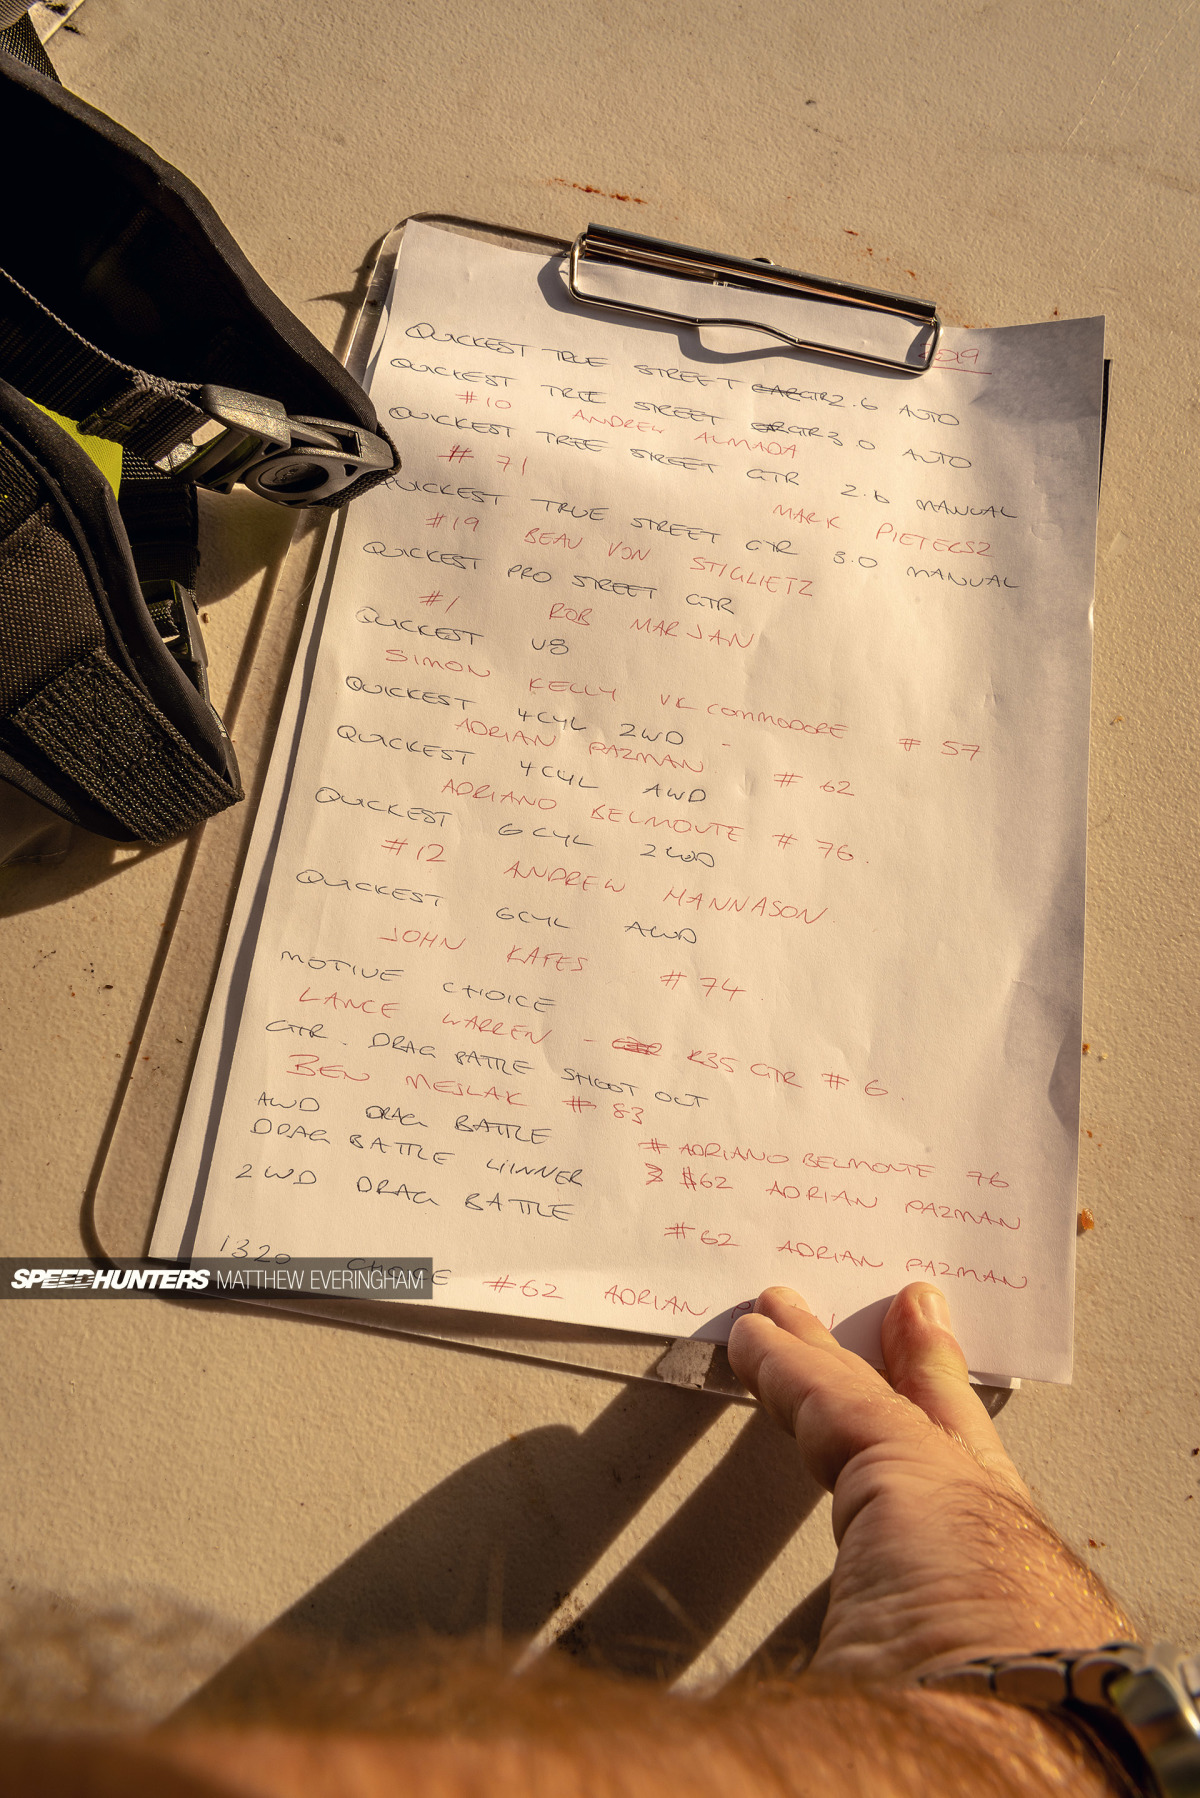 2019
QUICKEST TRUE STREET GTR 2.6 AUTO
QUICKEST TREE STREET GTR 3.0 AUTO
#10 ANDREW ALMADA
QUICKEST TREE STREET GTR 2.6 MANUAL
# 71 MARK PIETERSZ
QUICKEST TRUE STREET GTR 3.0 MANUAL
#19 BEAU VON STIGLIETZ
QUICKEST PRO STREET GTR
#1 ROB MARJAN
QUICKEST V8
SIMON KELLY VK COMMODORE # 57
QUICKEST 4CYL 2WD -
ADRIAN PAZMAN # 62
QUICKEST 4CYL AWD
ADRIANO BELMONTE # 76.
QUICKEST 6CYL 2WD
#12 ANDREW MANNASON.
QUICKEST 6CYL AWD
JOHN KAFES # 74.
MOTIVE CHOICE
LANCE WARREN - R35 GTR # 6.
GTR. DRAG BATTLE SHOOT OUT
BEN MESLAK # 83
AWD DRAG BATTLE # ADRIANO BELMONTE 76
DRAG BATTLE WINNER #62 ADRIAN PAZMAN
2WD DRAG BATTLE #62 ADRIAN PAZMAN
1320 CHOICE #62 ADRIAN
SPEEDHUNTERS MATTHEW EVERINGHAM